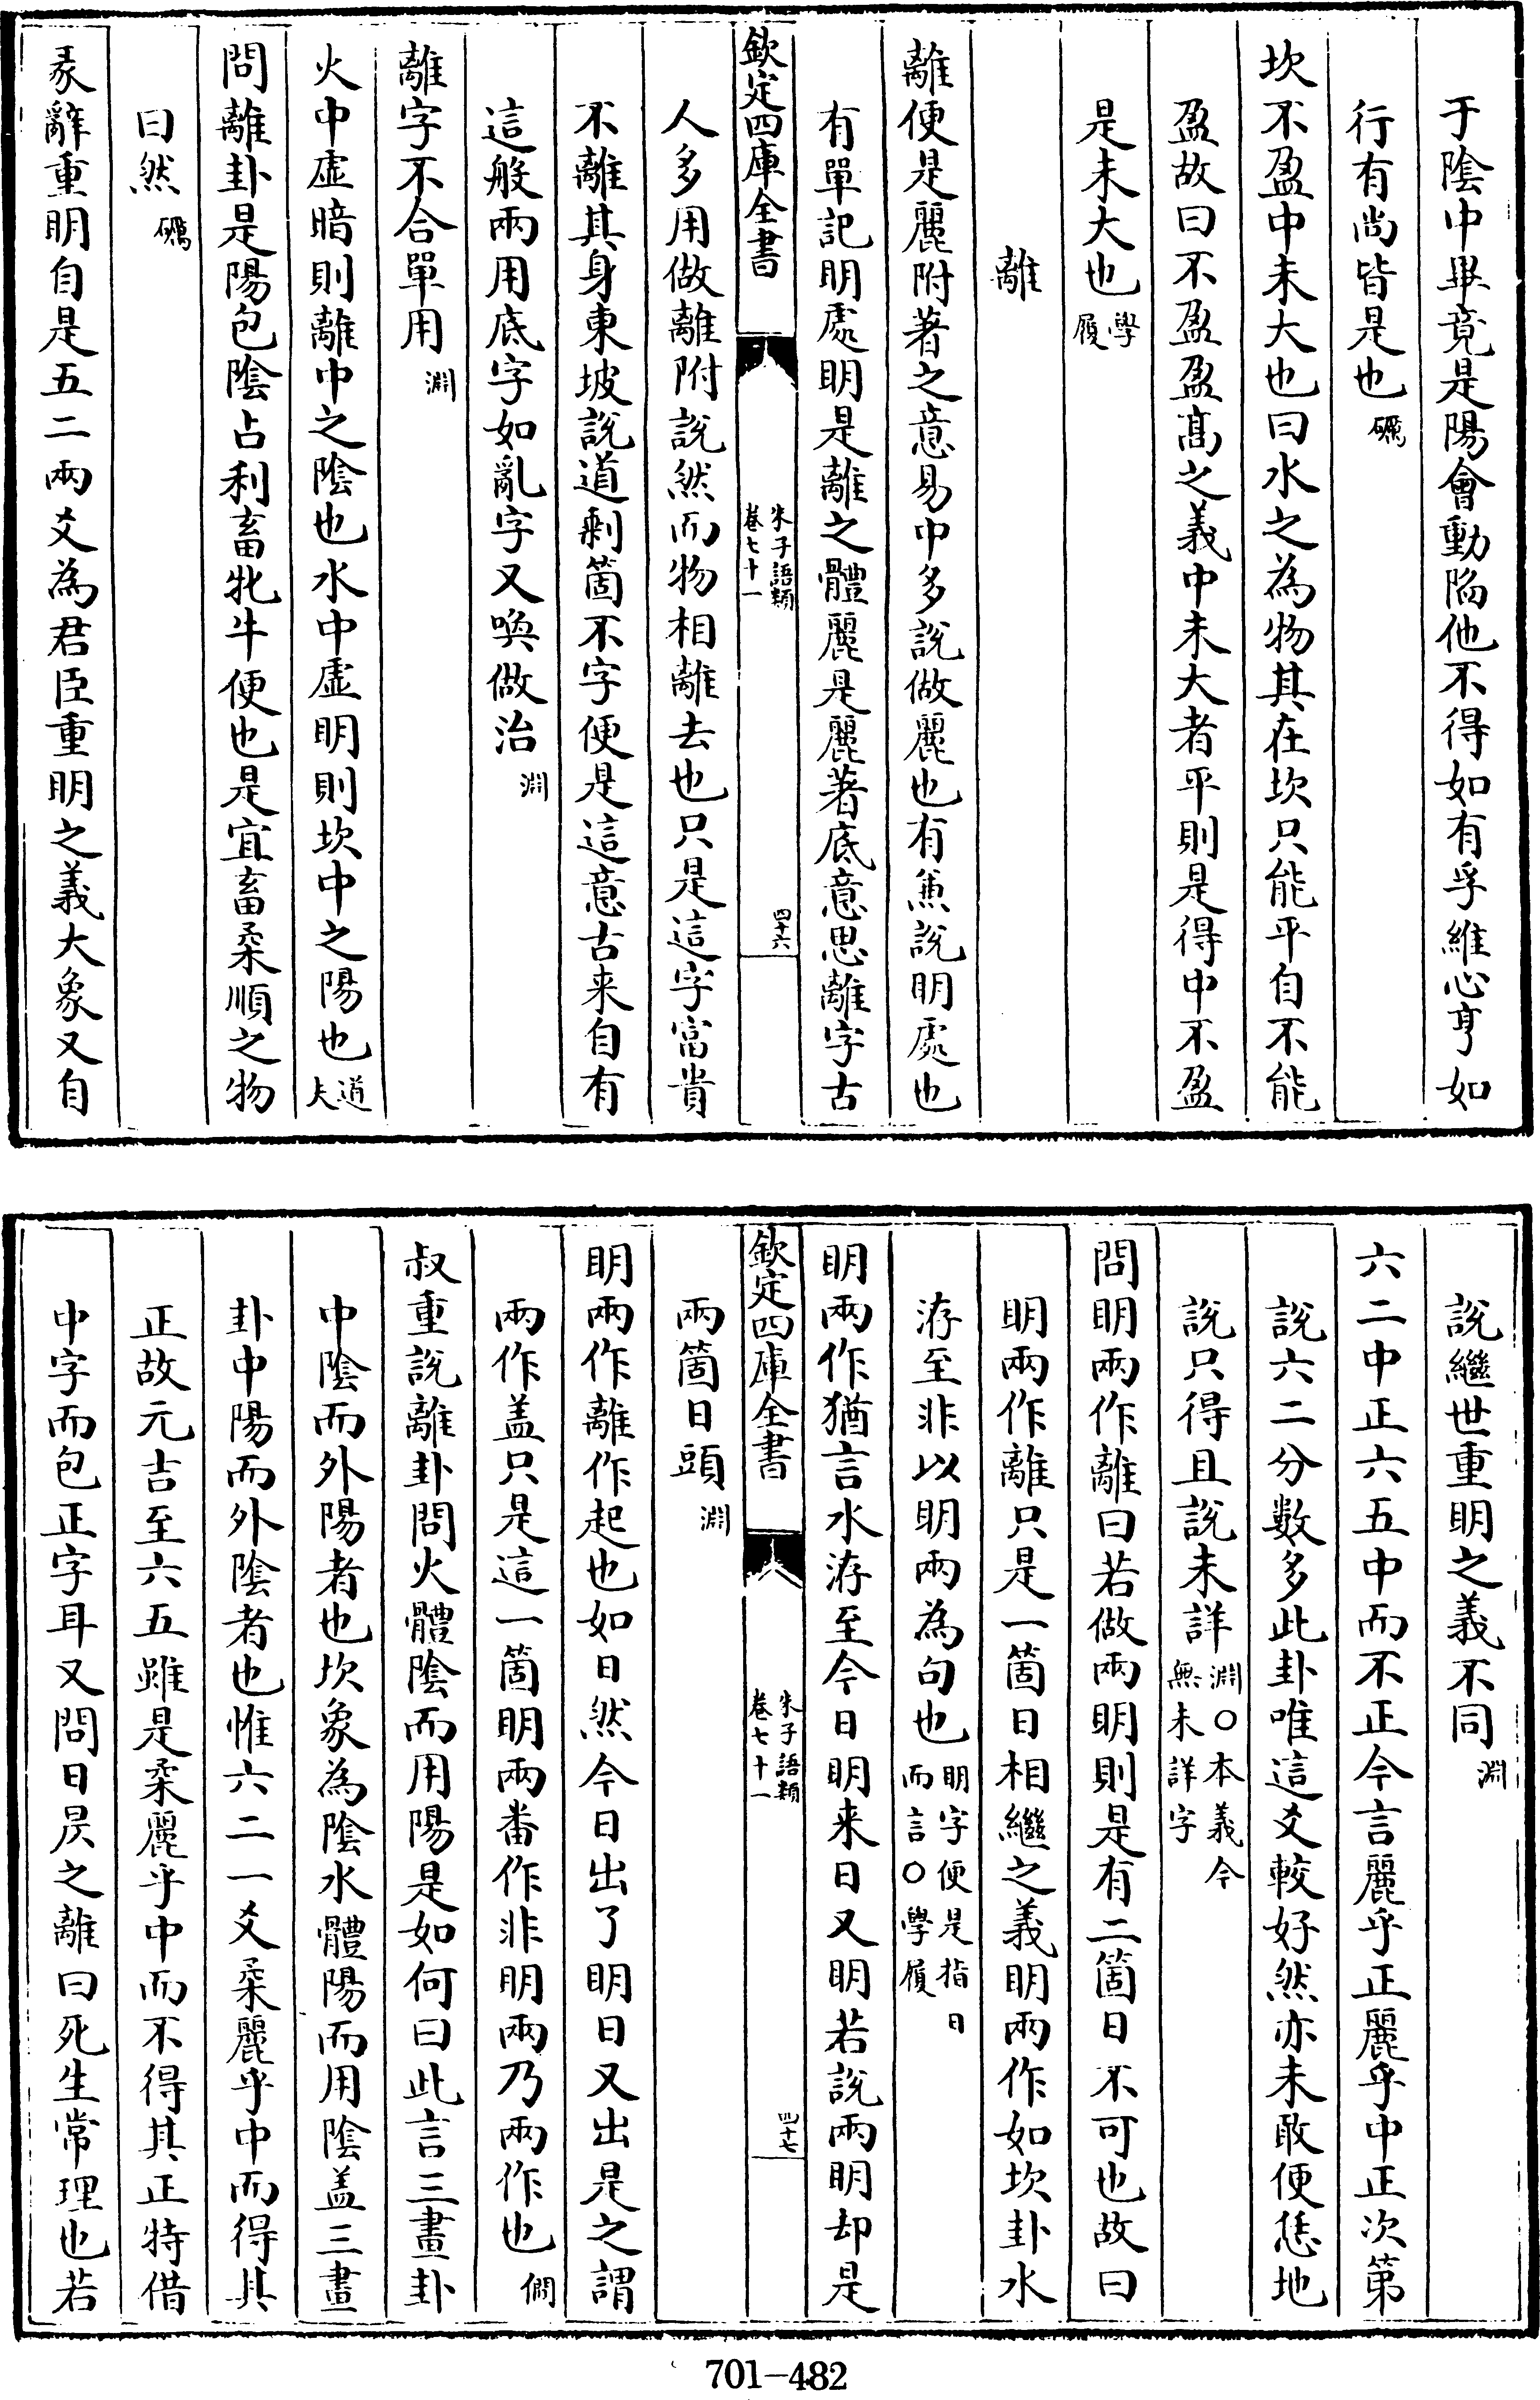 于陰中畢竟是陽會動陷他不得如有孚維心亨如
行有尚皆是也礪
坎不盈中未大也曰水之為物其在坎只能平自不能
盈故曰不盈盈髙之義中未大者平則是得中不盈
是未大也學履
離
離便是麗附著之意易中多說做麗也有兼說明處也
有單記明處明是離之體麗是麗著底意思離字古
欽定四庫全書
朱子語類
卷七十一
四十六
人多用做離附說然而物相離去也只是這字富貴
不離其身東坡說道剩箇不字便是這意古来自有
這般兩用底字如亂字又喚做治淵
離字不合單用淵
火中虛暗則離中之陰也水中虛明則坎中之陽也道夫
問離卦是陽包陰占利畜牝牛便也是宜畜柔順之物
曰然礪
彖辭重明自是五二兩爻為君臣重明之義大象又自
說繼世重明之義不同淵
六二中正六五中而不正今言麗乎正麗乎中正次第
說六二分數多此卦唯這爻較好然亦未敢便恁地
說只得且說未詳淵○本義今無未詳字
問明兩作離曰若做兩明則是有二箇日不可也故曰
明兩作離只是一箇日相繼之義明兩作如坎卦水
洊至非以明兩為句也明字便是指日而言○學履
明兩作猶言水洊至今日明来日又明若說兩明却是
欽定四庫全書
朱子語類
卷七十一
四十七
兩箇日頭淵
明兩作離作起也如日然今日出了明日又出是之謂
兩作盖只是這一箇明兩番作非明兩乃兩作也僩
叔重說離卦問火體陰而用陽是如何曰此言三畫卦
中陰而外陽者也坎象為陰水體陽而用陰盖三畫
卦中陽而外陰者也惟六二一爻柔麗乎中而得其
正故元吉至六五雖是柔麗乎中而不得其正特借
中字而包正字耳又問日昃之離曰死生常理也若
701-482